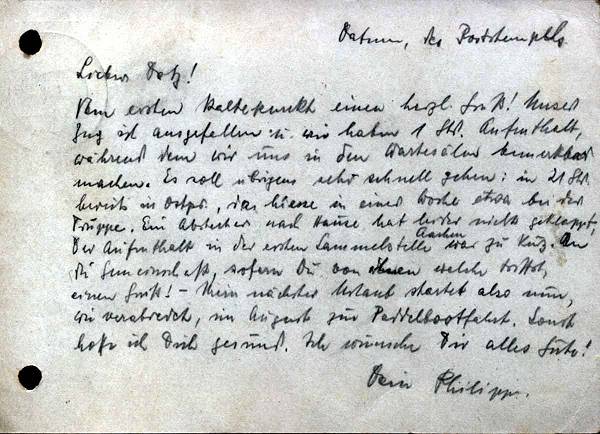 Datum, des Poststempels
Lieber Datz!
Vom ersten Haltepunkt einen herzl. Gruß! Unser
Zug ist ausgefallen u. wir haben 1 Std. Aufenthalt,
während dem wir uns in den Wartesälen bemerkbar
machen. Es soll übrigens sehr schnell gehen: in 21 Std.
bereits in Ostpr., das hiesse in einer Woche etwa bei der
Truppe. Ein Abstecher nach Hause hat leider nicht geklappt,
Der Aufenthalt in der ersten Sammelstelle Aachen war zu kurz. An
die Gemeinschaft, sofern Du von ihnen welche triffst,
einen Gruß! – Mein nächster Urlaub startet also nun,
wie verabredet, im August zur Paddelbootfahrt. Sonst
hoffe ich Dich gesund. Ich wünsche Dir alles Gute!
Dein Philipp.